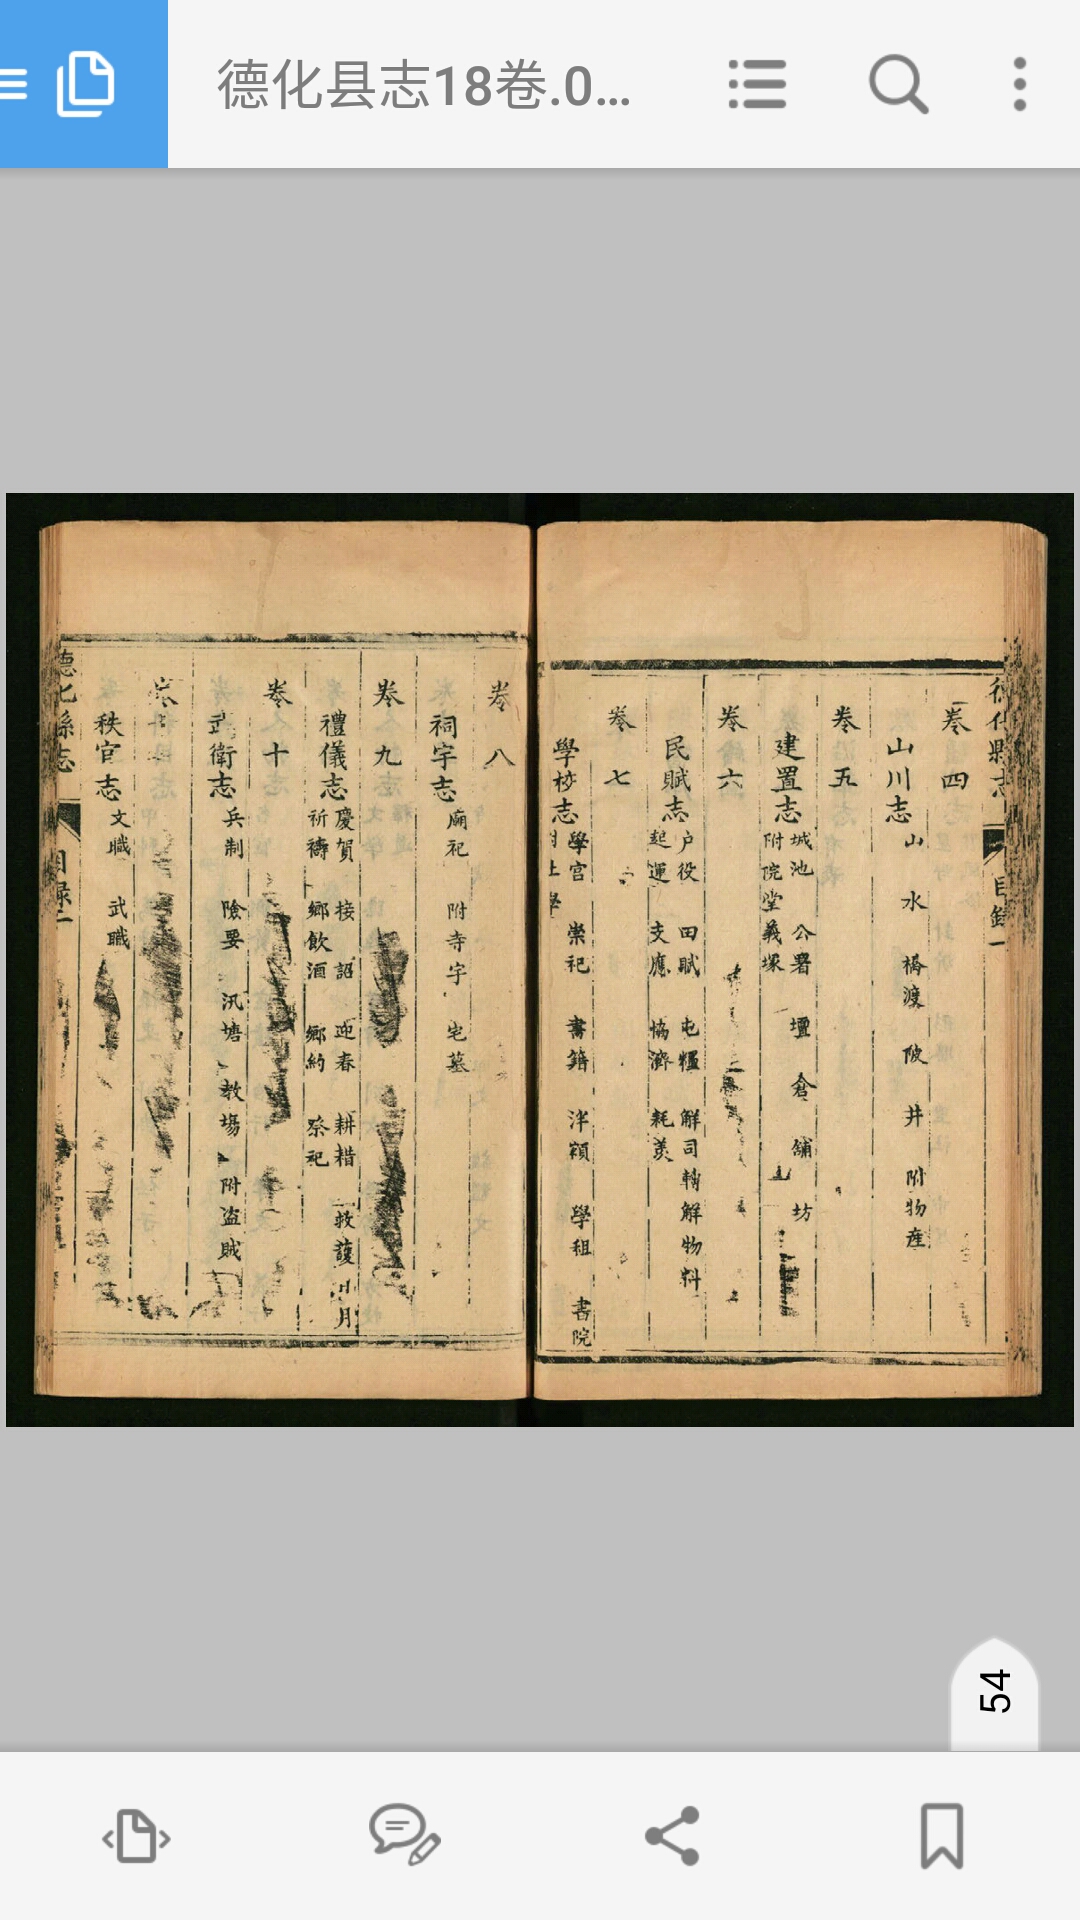 德化县志18卷.0...
德化縣志
目錄一
卷四
山川志
山 水 橋渡 陂 井 附物産
卷五
建置志
城池 公署 壇 倉 舖 坊
附院堂義塚
卷六
民賦志
户役 田賦 屯糧 解司轉解物料
起運 支應 協濟 耗羨
卷七
學校志
學宫 崇祀 書籍 泮額 學租 書院
卷八
祠宇志
廟祀 附寺宇 宅墓
卷九
禮儀志
慶賀 接詔 迎春 耕耤 救護日月
祈禱 鄉飲酒 鄉約 祭祀
卷十
武衛志
兵制 險要 汛塘 教場 附盗賊
卷
秩官志
文職 武職
德化縣志
目録二
54